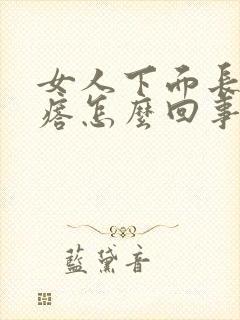 女人下而長
痞怎麼回事
藍黛音